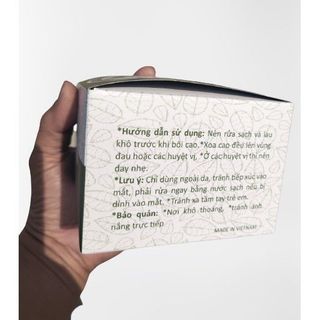 *Hướng dẫn sử dụng: Nên rửa sạch và lau
khô trước khi bôi cao. *Xoa cao đều lên vùng
đau hoặc các huyệt vị. *Ở các huyệt vị thì nên
day nhẹ.
*Lưu ý: Chỉ dùng ngoài da, tránh tiếp xúc vào
mắt, phải rửa ngay bằng nước sạch nếu bị
dính vào mắt. *Tránh xa tầm tay trẻ em.
*Bảo quản: *Nơi khô thoáng, *tránh ánh
nắng trực tiếp
MADE IN VIETNAM